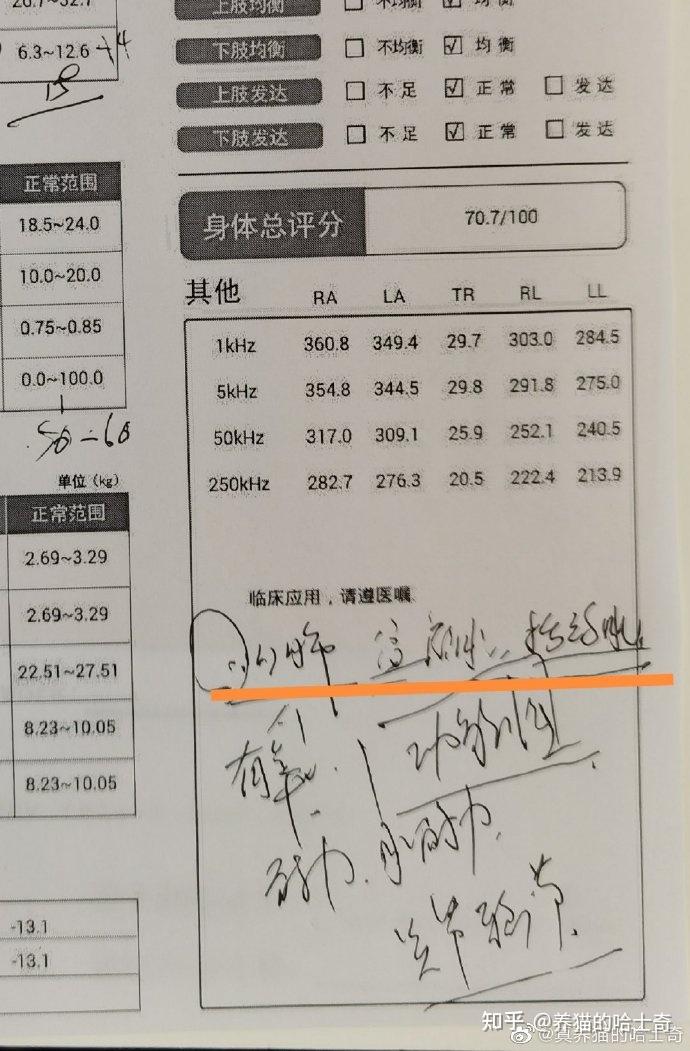 20.7~32.7
6.3~12.6 14
18
正常范围
18.5~24.0
10.0~20.0
0.75~0.85
0.0~100.0
50-60
单位（kg）
正常范围
2.69~3.29
2.69~3.29
22.51~27.51
8.23~10.05
8.23~10.05
-13.1
-13.1
上肢均衡 不均衡 均衡
下肢均衡 不均衡 均衡
上肢发达 不足 正常 发达
下肢发达 不足 正常 发达
身体总评分 70.7/100
其他 RA LA TR RL LL
1kHz 360.8 349.4 29.7 303.0 284.5
5kHz 354.8 344.5 29.8 291.8 275.0
50kHz 317.0 309.1 25.9 252.1 240.5
250kHz 282.7 276.3 20.5 222.4 213.9
临床应用，请遵医嘱
有氧
功能训练
耐力
肌耐力
关节
知乎 @养猫的哈士奇
@真养猫的哈士奇